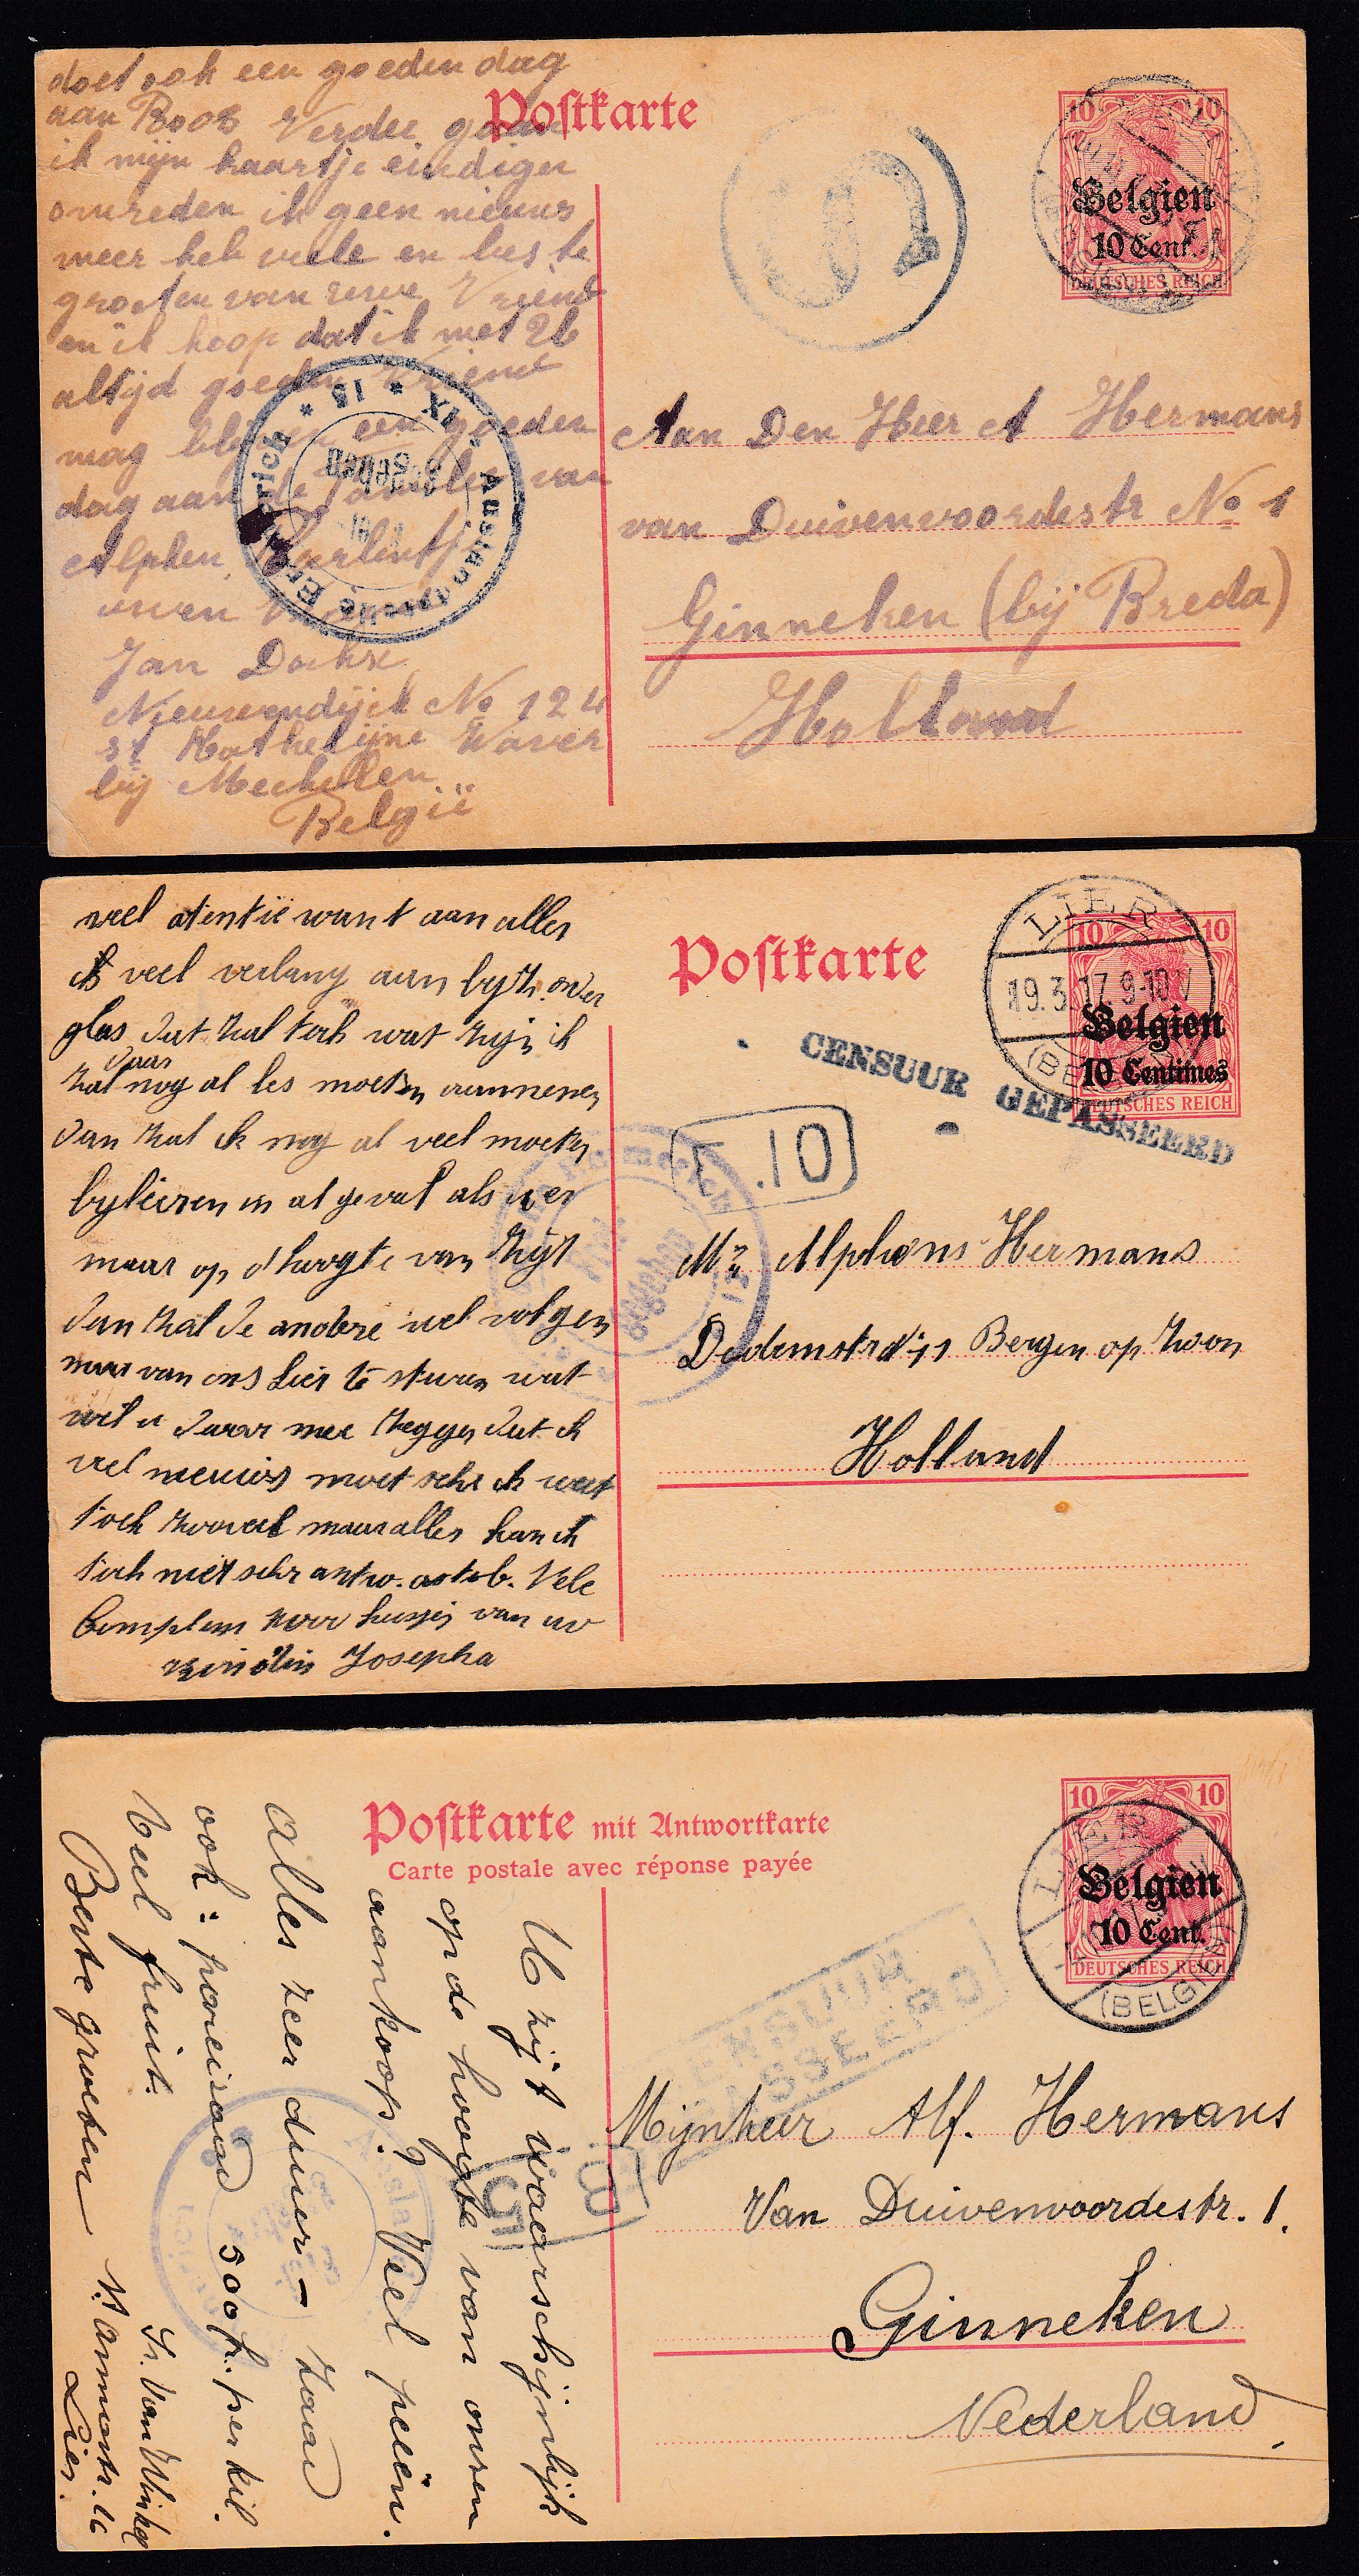 doet ook een goeden dag
aan Roos Verder gaan
ik mijn kaartje eindigen
omreden ik geen nieuws
meer heb vele en beste
groeten van uwe Vriend
en ik hoop dat ik met
altijd goeden Vriend
mag een goeden
dag aan de van
Alphen
uwen
Jan
Nieuwendijk No 124
st Kathelijne Waver
bij Mechelen
België
Postkarte
10 10
Belgien
10 Cent.
DEUTSCHES REICH
Auslandstelle
15
Aan Den Heer A Hermans
van Duivenvoordestr No 1
Ginneken (bij Breda)
Holland
veel atentie want aan alles
is veel verlang aan
glas dat zal toch wat zijn ik
daar
zal nog al les moeten aannemen
dan zal ik nog al veel moeten
byleeren in al geval als wer
maar op d'hoogte van zijt
dan zal de andere wel volgen
maar van ons Lier te sturen wat
wil u daar mee zeggen dat ik
veel nieuws moet schr ik weet
toch zooveel maar alles kan ik
toch niet schr antw. astob. Vele
Complem van uw
vriendin Josepha
Postkarte
LIER
19.3.17.9-10V
10 10
Belgien
10 Centimes
DEUTSCHES REICH
CENSUUR GEPASSEERD
.10
Mr Alphons Hermans
Bergen op Zoom
Holland
Postkarte mit Antwortkarte
Carte postale avec réponse payée
LIER
(BELGIEN)
10 10
Belgien
10 Cent.
DEUTSCHES REICH
CENSUUR
PASSEERD
U zijt waarschijnlijk
op de hoogte van onzen
aankoop? Veel peeën.
Alles zeer duur – zaad
ook: poreizaad 500 fr. per kil.
Veel fruit.
Beste groeten
Lier.
Mijnheer Alf. Hermans
Van Duivenvoordestr. 1.
Ginneken
Nederland